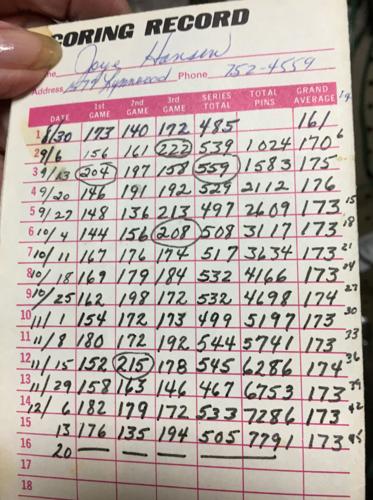 SCORING RECORD
Name Joye Hansen
Address 1579 Lynwood Phone 752-4559
DATE 1st GAME 2nd GAME 3rd GAME SERIES TOTAL TOTAL PINS GRAND AVERAGE
1 8/30 173 140 172 485 161
2 9/6 156 161 222 539 1024 170 6
3 9/13 204 197 158 559 1583 175
4 9/20 146 191 192 529 2112 176
5 9/27 148 136 213 497 2609 173 15
6 10/4 144 156 208 508 3117 173 18
7 10/11 167 176 174 517 3634 173 21
8 10/18 169 179 184 532 4166 173 24
9 10/25 162 198 172 532 4698 174 27
10 11/1 154 172 173 499 5197 173 30
11 11/8 180 172 192 544 5741 173 33
12 11/15 152 215 178 545 6286 174 36
13 11/29 158 163 146 467 6753 173 39
14 12/6 182 179 172 533 7286 173 42
15 13 176 135 194 505 7791 173 45
16 20 — — — —
17
18